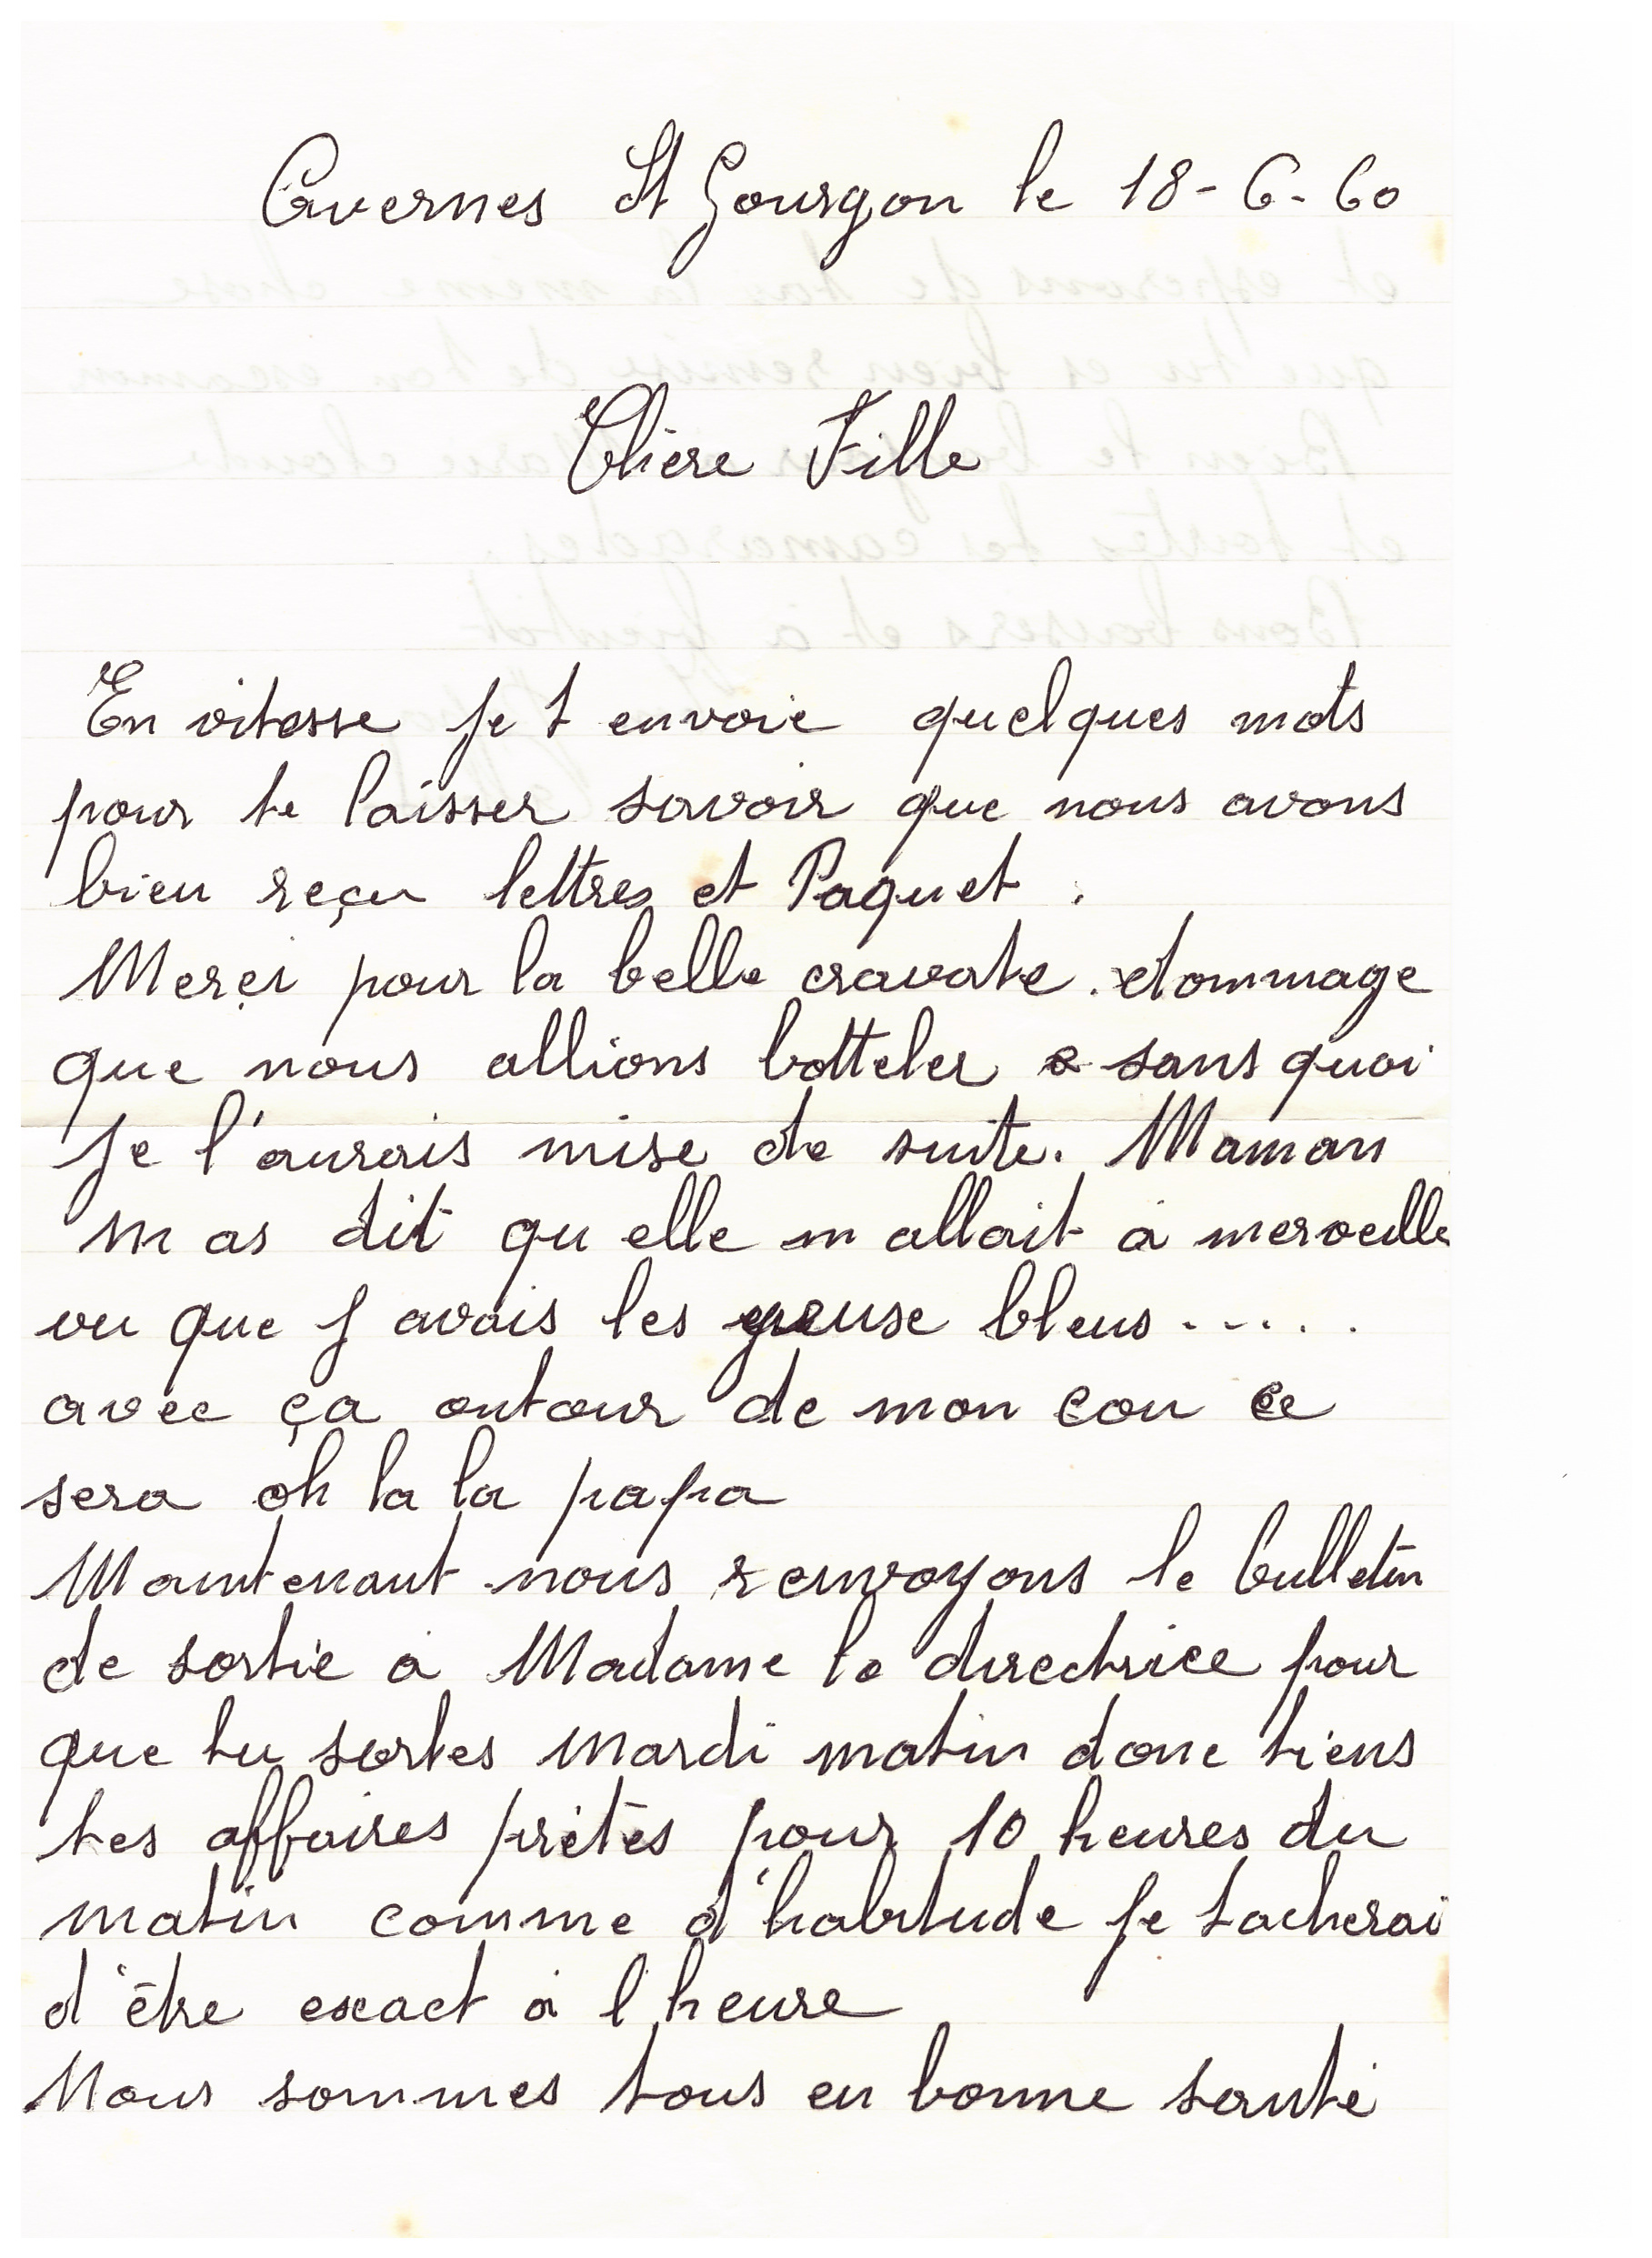 Avernes St Gourgon le 18-6-60
Chère Fille
En vitesse je t envoie quelques mots
pour te laisser savoir que nous avons
bien reçu lettres et Paquet.
Merçi pour la belle cravate. dommage
que nous allions botteler sans quoi
je l'aurais mise de suite. Maman
m as dit qu elle m allait à merveille
vu que j avais les yeuse bleus.....
avec ça autour de mon cou ce
sera oh la la papa
Maintenant nous renvoyons le bulletin
de sortie à Madame la directrice pour
que tu sortes mardi matin donc tiens
tes affaires prètes pour 10 heures du
matin comme d'habitude je tacherai
d'être exact à l heure
Nous sommes tous en bonne santé